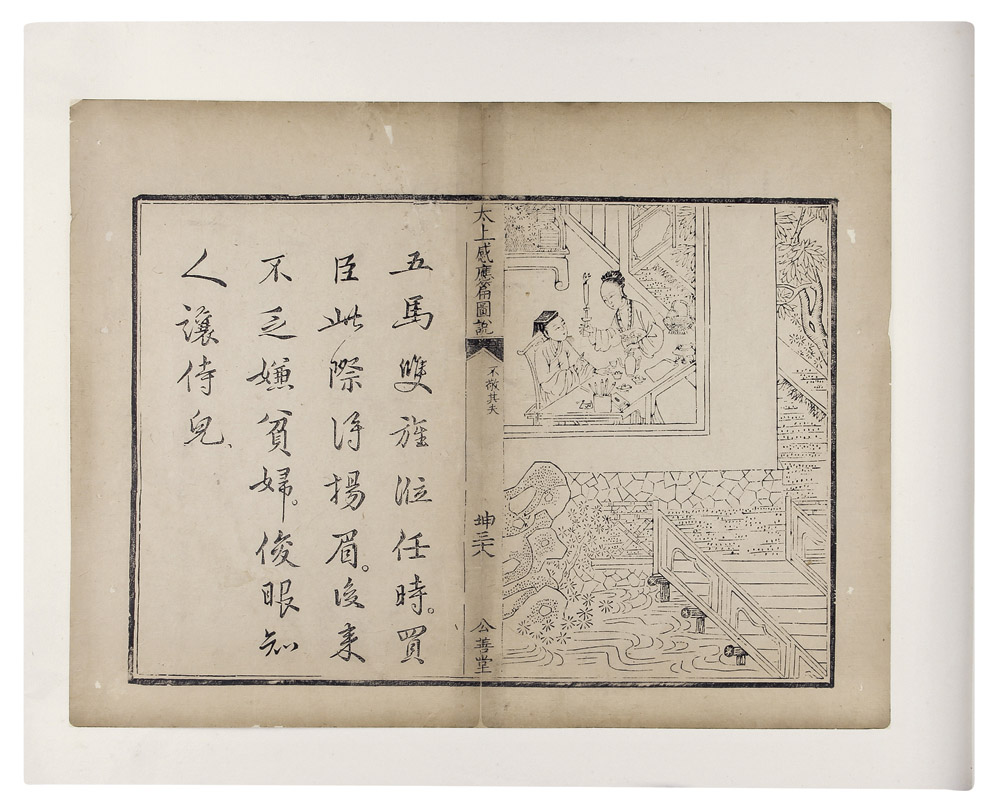 太上感應篇圖說
不敬其夫
坤三十八
公善堂
五馬雙旌涖任時。買
臣此際得揚眉。後来
不乏嫌貧婦。俊眼知
人讓侍兒、